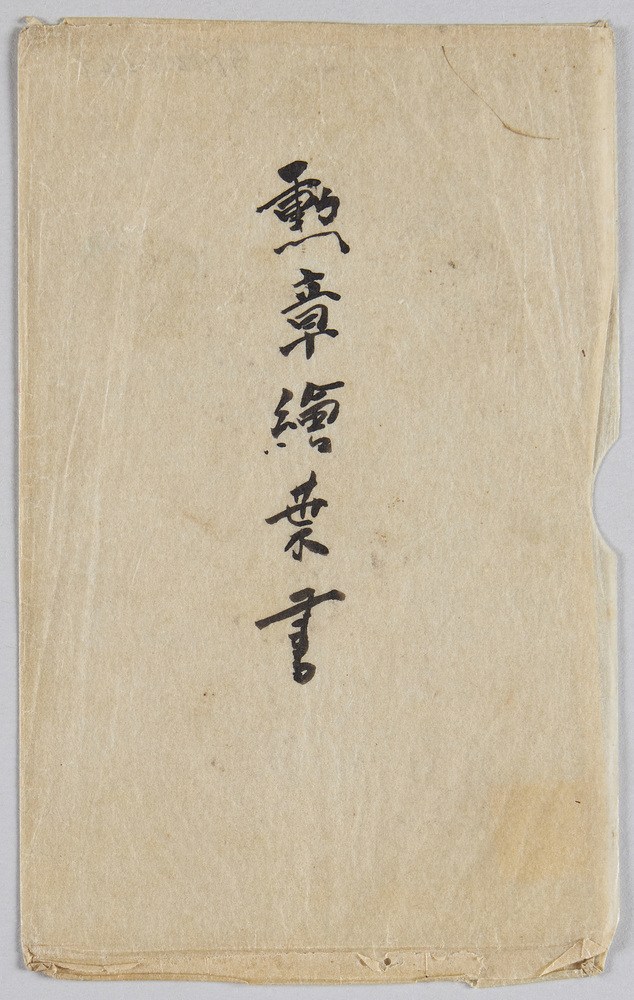 勲章繪葉書